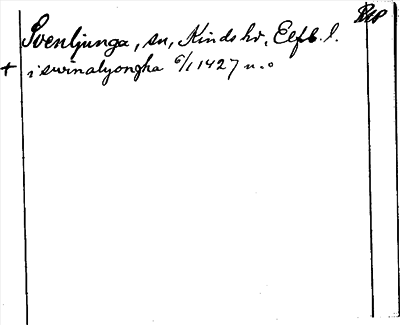 Rep
Svenljunga, sn, Kinds hd, Elfsb. l.
+ i swinalyongha 6/1 1427 n. o